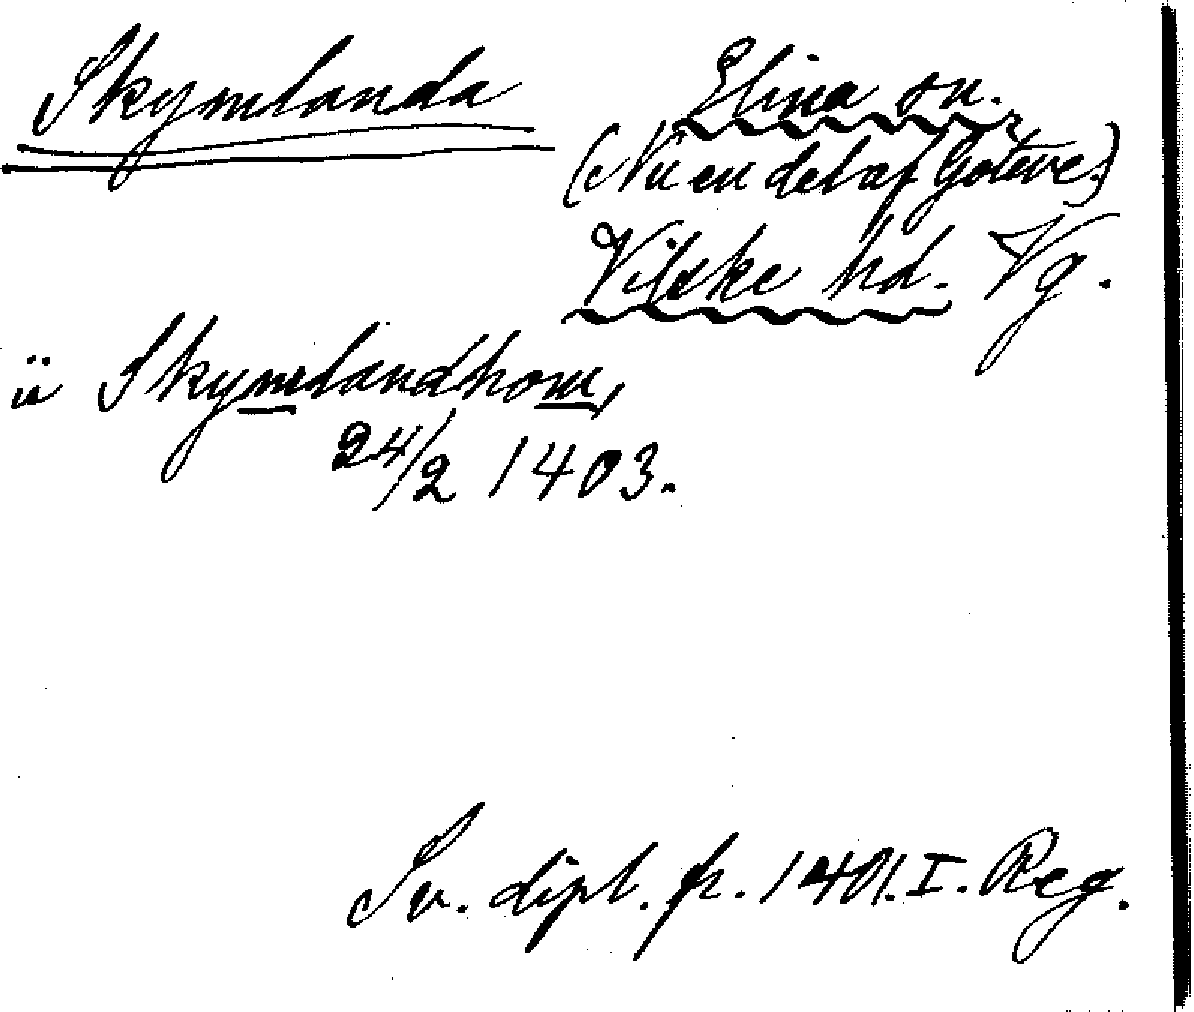 Skymlanda
Elina sn.
(Nu en del af Göteve.)
Vilske hd. Vg.
ü Skymlandhom,
24/2 1403.
Sv. dipl. fr. 1401. I. Reg.